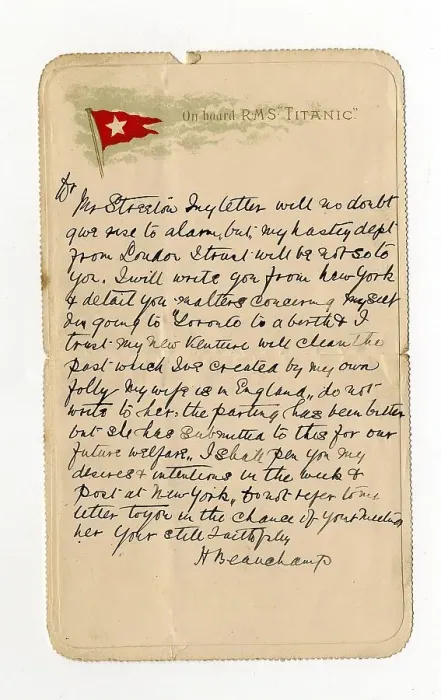 On board RMS "TITANIC".
Dr
Mr Streeton My letter will no doubt
give rise to alarm, but, my hasty dept
from London I trust will be not so to
you. I will write you from New York
& detail you matters concerning myself
Im going to "Toronto to a berth & I
trust my New Venture will clean the
past which Ive created by my own
folly My wife is in England,, do not
write to her. the parting has been bitter
but she has submitted to this for our
future welfare,. I shall pen you my
desires & intentions in the week &
post at New York,, Do not refer to my
letter to you in the chance of your meeting
her Your still Faithfully
H Beauchamp